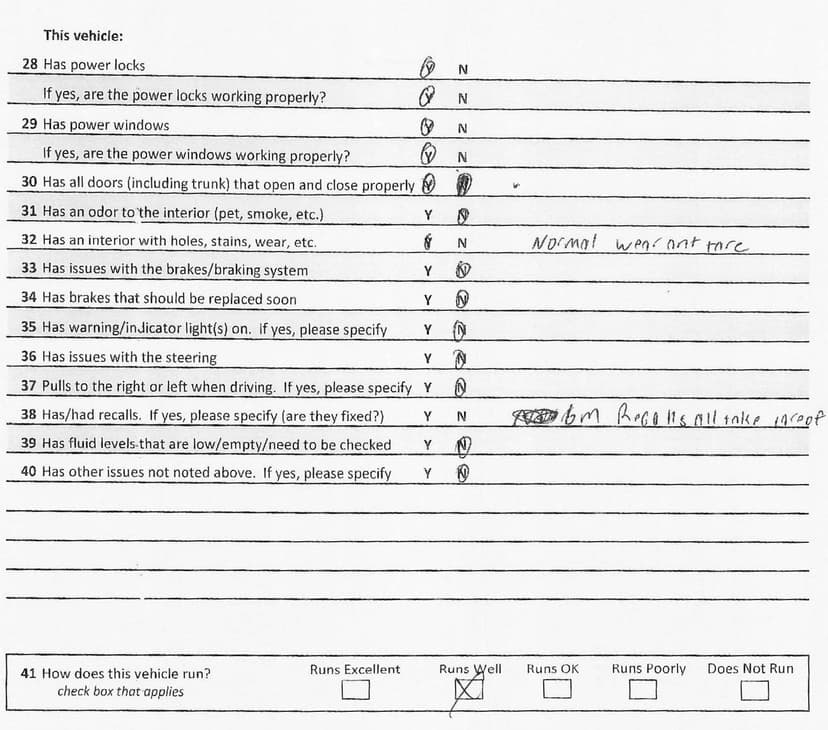 This vehicle:
28 Has power locks Y N
If yes, are the power locks working properly? Y N
29 Has power windows Y N
If yes, are the power windows working properly? Y N
30 Has all doors (including trunk) that open and close properly Y N
31 Has an odor to the interior (pet, smoke, etc.) Y N
32 Has an interior with holes, stains, wear, etc. Y N Normal wear ant tare
33 Has issues with the brakes/braking system Y N
34 Has brakes that should be replaced soon Y N
35 Has warning/indicator light(s) on. if yes, please specify Y N
36 Has issues with the steering Y N
37 Pulls to the right or left when driving. If yes, please specify Y N
38 Has/had recalls. If yes, please specify (are they fixed?) Y N GM Recalls all take
39 Has fluid levels that are low/empty/need to be checked Y N
40 Has other issues not noted above. If yes, please specify Y N
41 How does this vehicle run? Runs Excellent Runs Well Runs OK Runs Poorly Does Not Run
check box that applies